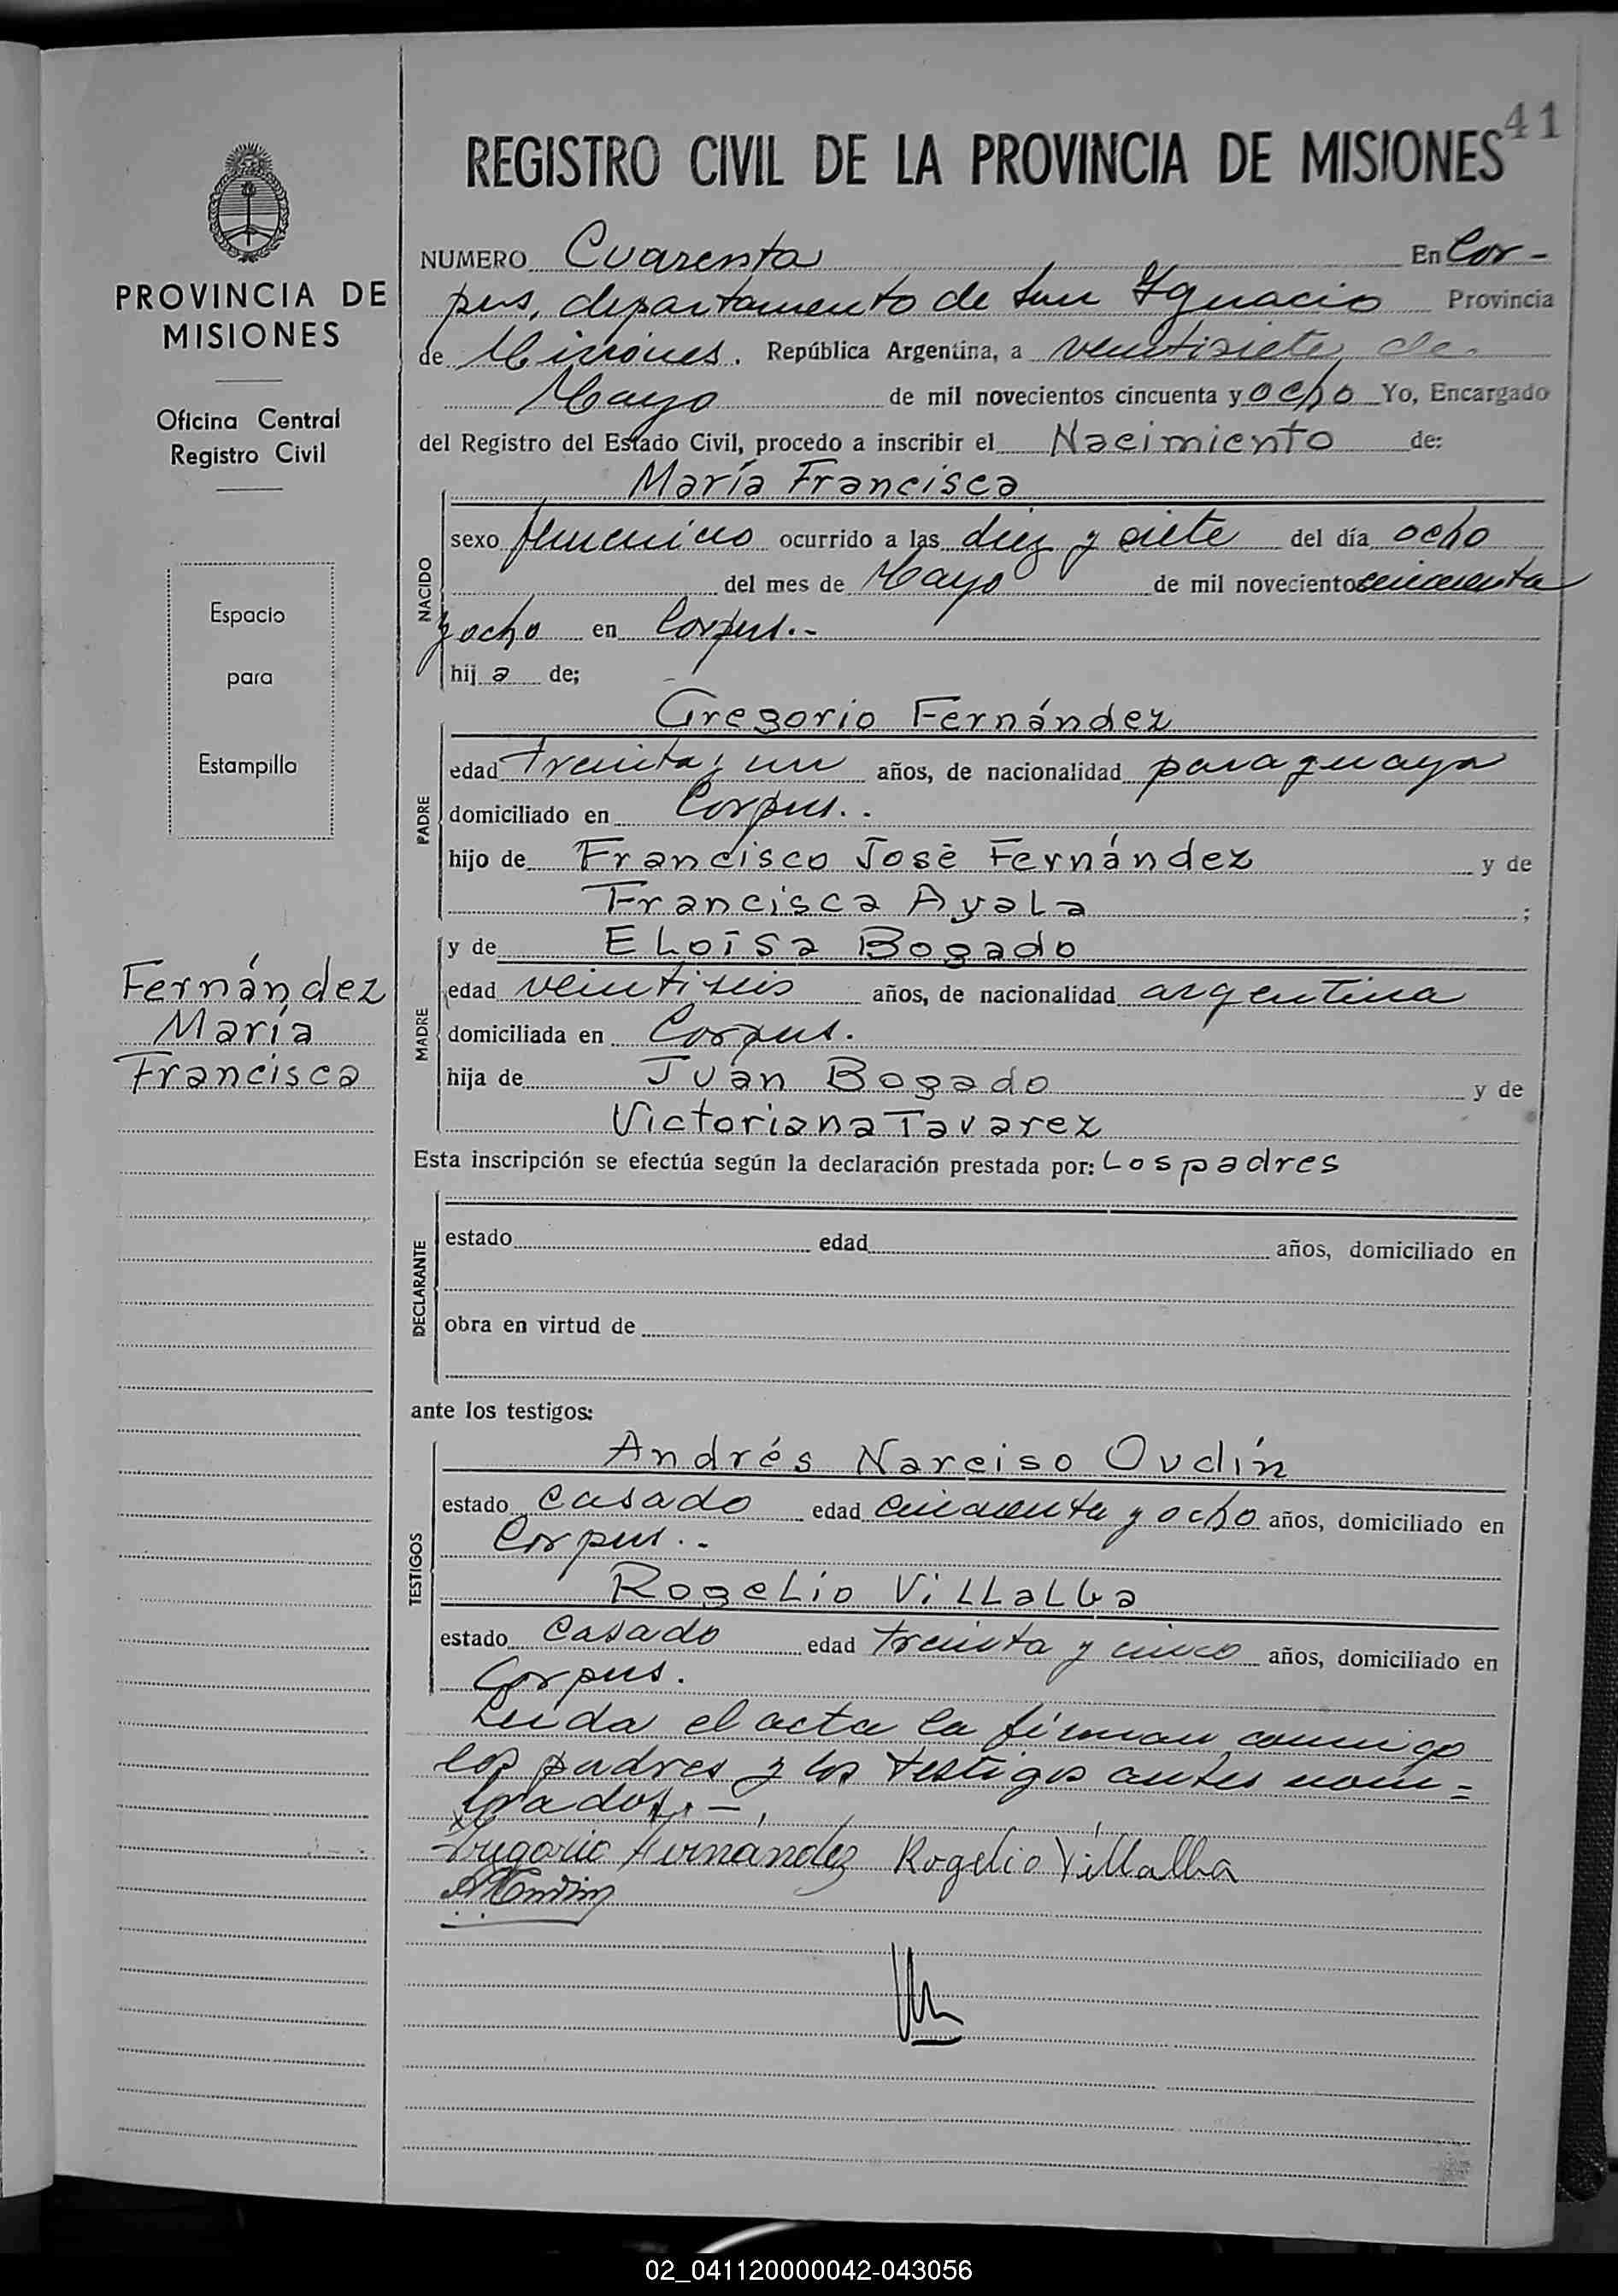 41
REGISTRO CIVIL DE LA PROVINCIA DE MISIONES
PROVINCIA DE
MISIONES
Oficina Central
Registro Civil
Espacio
para
Estampilla
Fernández
María
Francisca
NUMERO Cuarenta En Cor-
pus, departamento de San Ygnacio Provincia
de Misiones. República Argentina, a veintisiete de
Mayo de mil novecientos cincuenta y ocho Yo, Encargado
del Registro del Estado Civil, procedo a inscribir el Nacimiento de:
NACIDO
María Francisca
sexo femenino ocurrido a las diez y siete del día ocho
del mes de Mayo de mil novecientos cincuenta
y ocho en Corpus.-
hij a de;
PADRE
Gregorio Fernández
edad treinta y un años, de nacionalidad paraguaya
domiciliado en Corpus..
hijo de Francisco José Fernández y de
Francisca Ayala ;
MADRE
y de Eloísa Bogado
edad veintiseis años, de nacionalidad argentina
domiciliada en Corpus.
hija de Juan Bogado y de
Victoriana Tavarez
Esta inscripción se efectúa según la declaración prestada por: Los padres
DECLARANTE
estado edad años, domiciliado en
obra en virtud de
ante los testigos:
TESTIGOS
Andrés Narciso Oudín
estado casado edad cincuenta y ocho años, domiciliado en
Corpus..
Rogelio Villalba
estado casado edad treinta y cinco años, domiciliado en
Corpus.
Leida el acta la firman conmigo
los padres y los testigos antes nom=
brados.-
Gregorio Fernández Rogelio Villalba
02_041120000042-043056